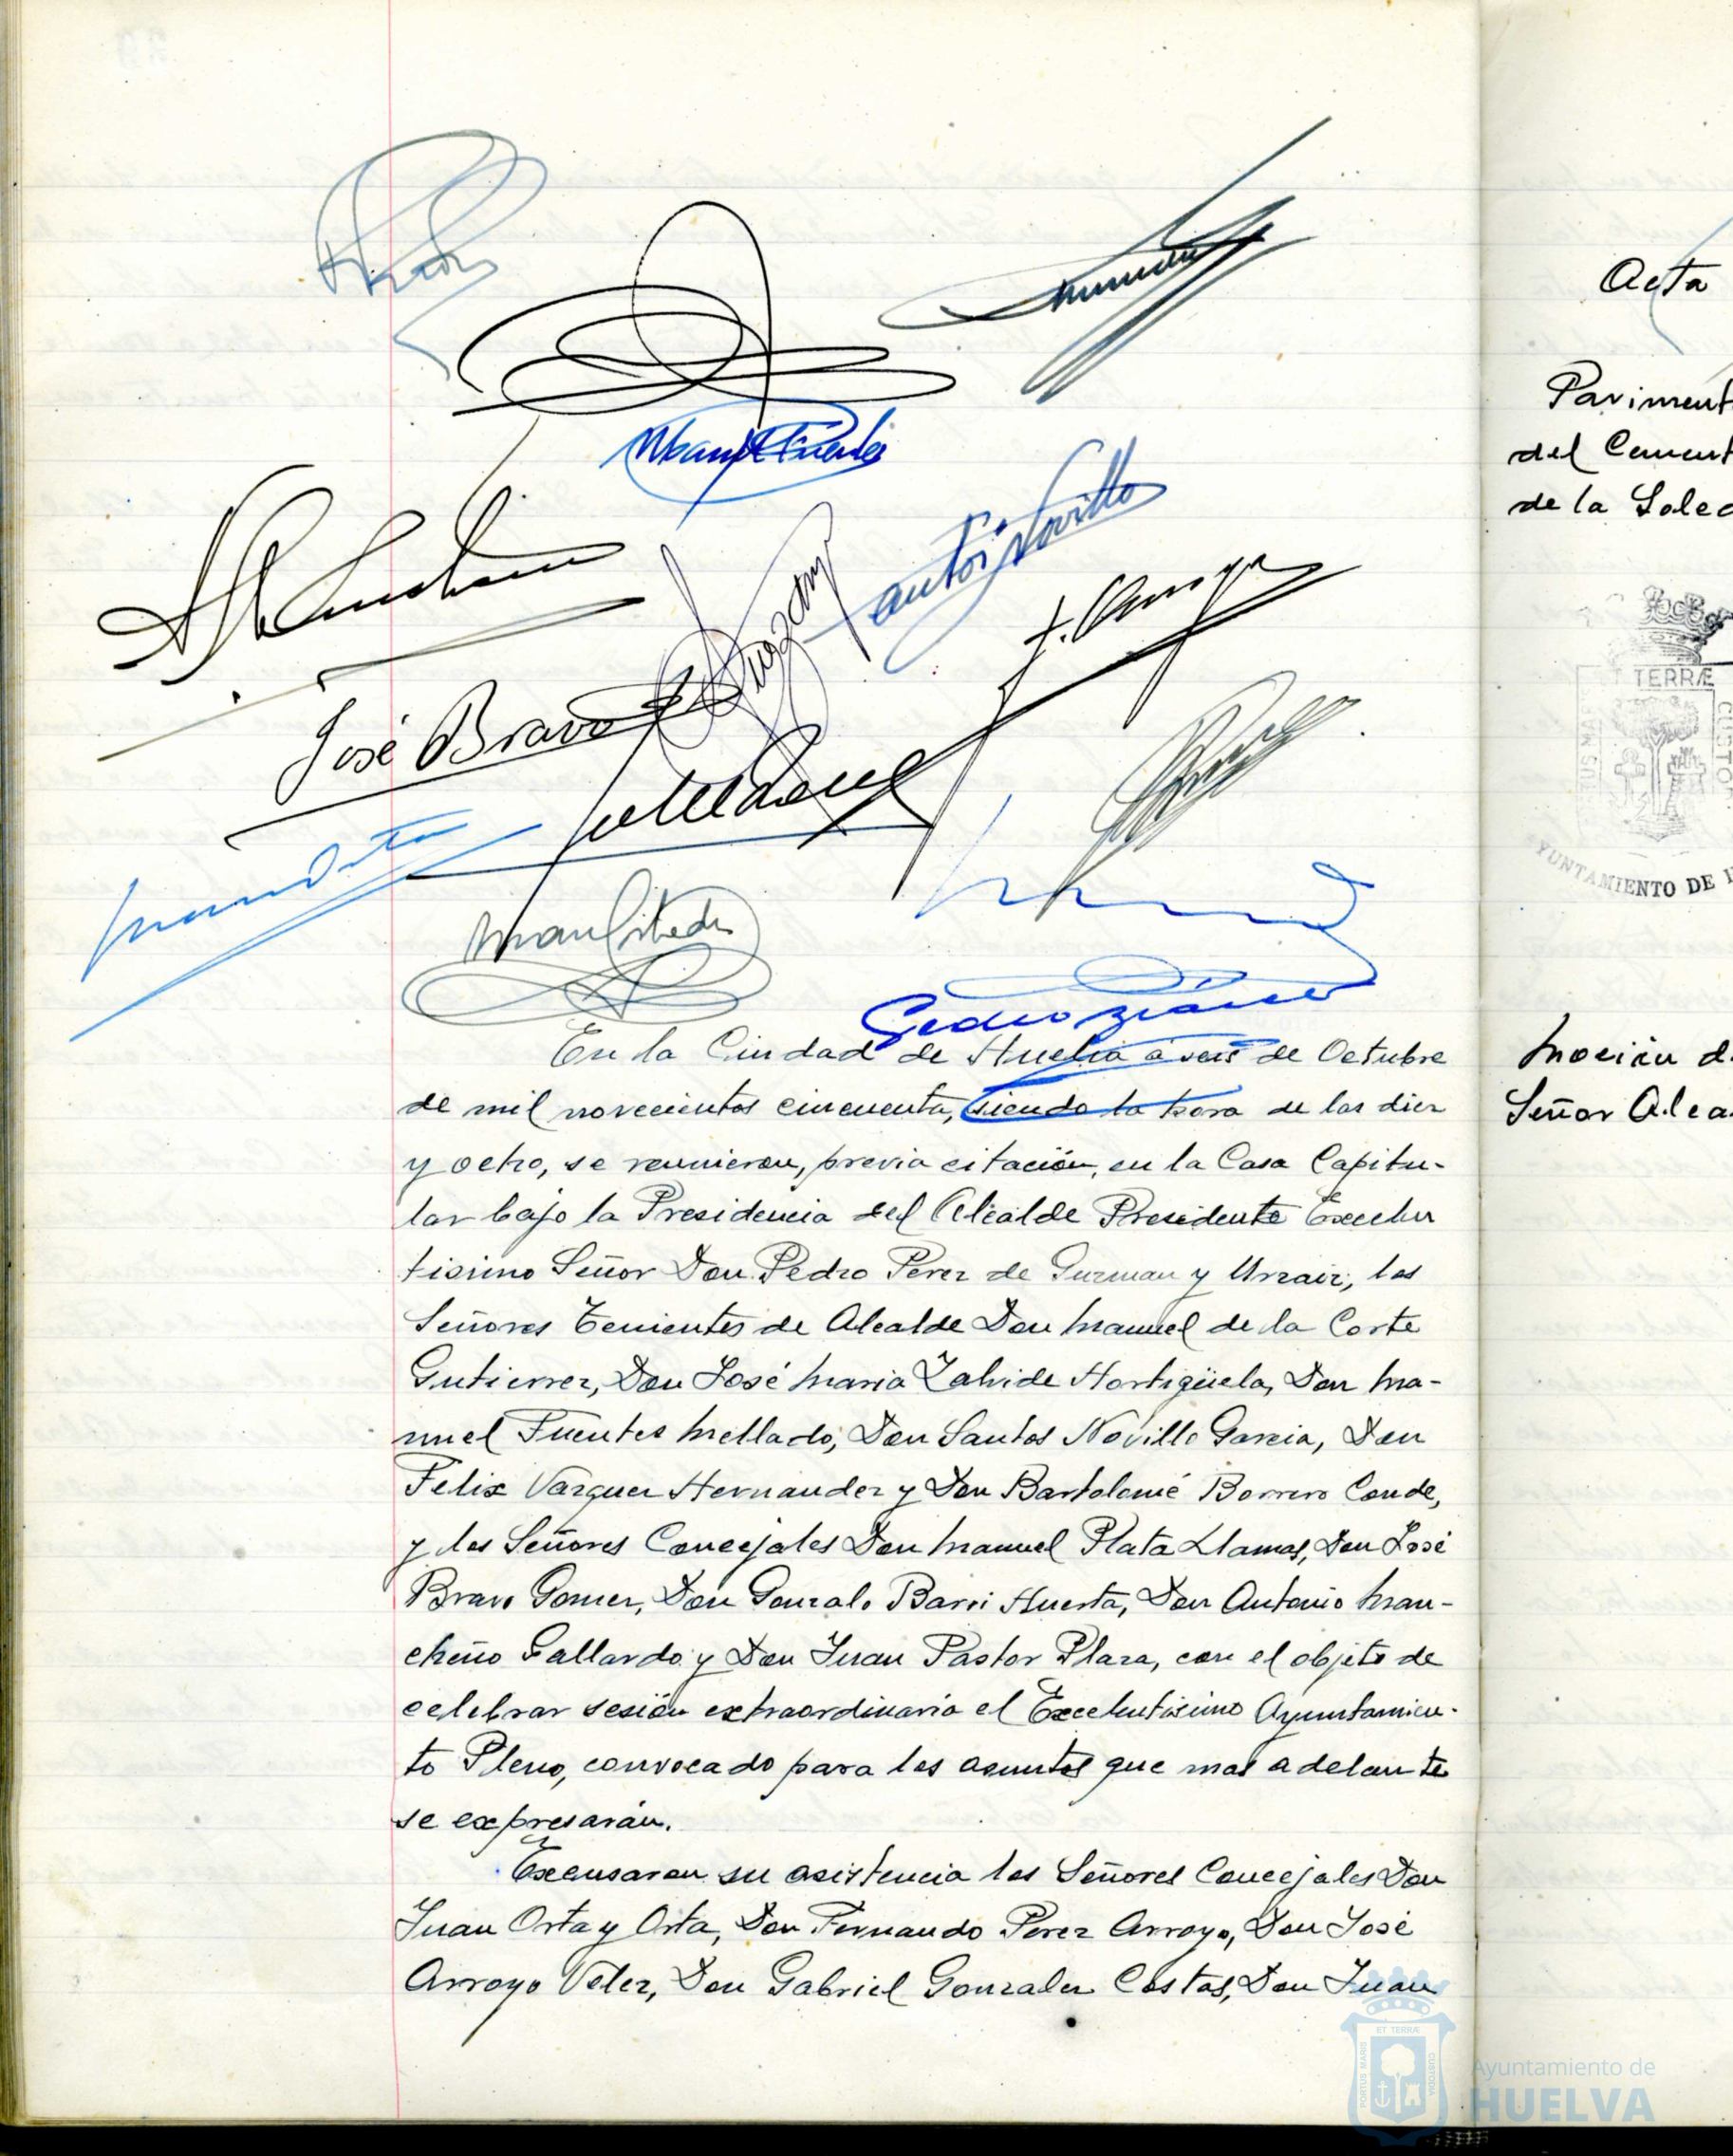 José Bravo
En la Ciudad de Huelva a seis de Octubre
de mil novecientos cincuenta, siendo la hora de las diez
y ocho, se reunieron, previa citación, en la Casa Capitu-
lar bajo la Presidencia del Alcalde Presidente Excelen
tisimo Señor Don Pedro Perez de Guzman y Urzaiz, los
Señores Tenientes de Alcalde Don Manuel de la Corte
Gutierrez, Don José Maria Zalvide Hortigüela, Don Ma-
nuel Fuentes Mellado, Don Santos Novillo Garcia, Don
Felix Vazquez Hernandez y Don Bartolomé Borrero Conde,
y los Señores Concejales Don Manuel Plata Llamas, Don José
Bravo Gomez, Don Gonzalo Barri Huerta, Don Antonio Man-
cheño Gallardo y Don Juan Pastor Plaza, con el objeto de
celebrar sesión extraordinaria el Excelentisimo Ayuntamien-
to Pleno, convocado para los asuntos que mas adelante
se expresarán.
Excusaron su asistencia los Señores Concejales Don
Juan Orta y Orta, Don Fernando Perez Arroyo, Don José
Arroyo Velez, Don Gabriel Gonzalez Costas, Don Juan
Acta
Paviment
del Cement
de la Soled
TERRÆ
AYUNTAMIENTO DE H
Moción d
Señor Alca
ET TERRÆ
PORTUS MARIS
CUSTODIA
Ayuntamiento de
HUELVA